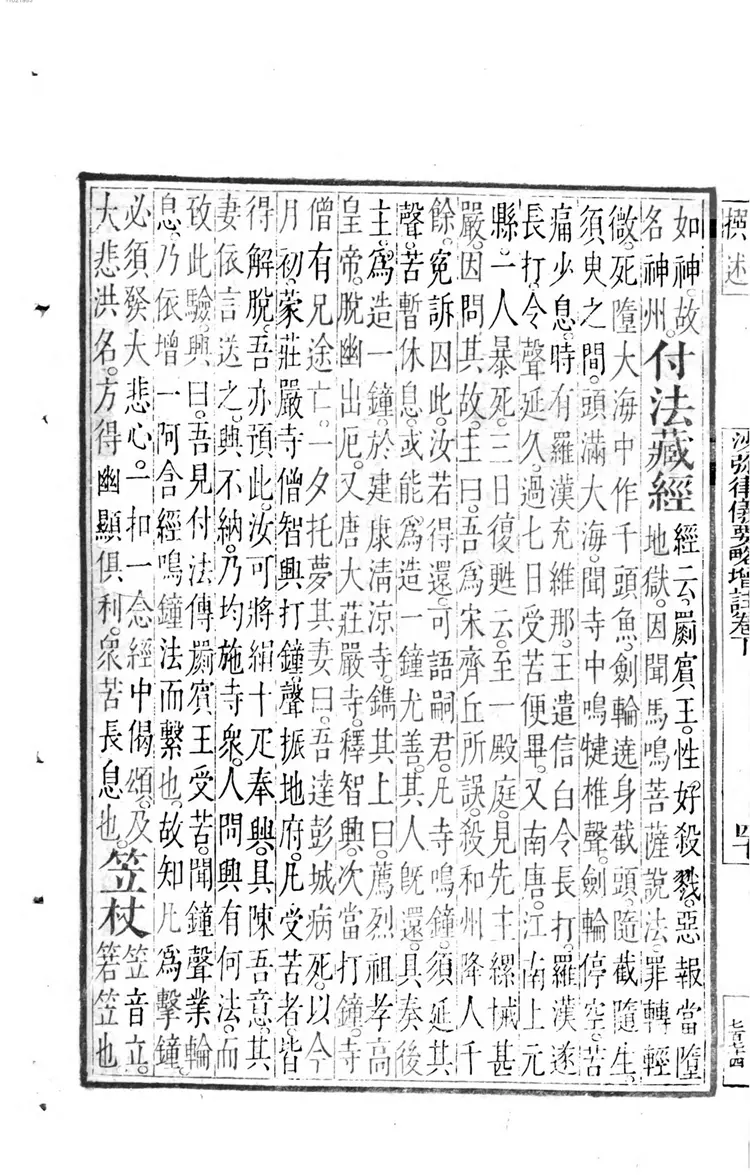 撰述 沙弥律儀要略增註卷下 四十
如神。故
名神州。
付法藏經
經云。罽賓王。性好殺戮。惡報當墮
地獄。因聞馬鳴菩薩說法。罪轉輕
微。死墮大海中作千頭魚。劍輪遶身截頭。隨截隨生。
須臾之間。頭滿大海。聞寺中鳴犍椎聲。劍輪停空。苦
痛少息。時有羅漢充維那。王遣信白令長打。羅漢遂
長打。令聲延久。過七日受苦便畢。又南唐。江南上元
縣。一人暴死。三日復甦云。至一殿庭。見先主縲械甚
嚴。因問其故。主曰。吾爲宋齊丘所誤。殺和州降人千
餘。冤訴囚此。汝若得還。可語嗣君。凡寺鳴鐘。須延其
聲。苦暫休息。或能爲造一鐘尤善。其人旣還。具奏後
主。爲造一鐘。於建康清涼寺。鐫其上曰。薦烈祖孝高
皇帝。脫幽出厄。又唐大莊嚴寺。釋智興。次當打鐘。寺
僧有兄途亡。一夕托夢其妻曰。吾達彭城病死。以今
月初。蒙莊嚴寺僧智興打鐘。聲振地府。凡受苦者。皆
得解脫。吾亦預此。汝可將絹十疋奉興。具陳吾意。其
妻依言送之。興不納。乃均施寺衆。人問興有何法。而
致此驗。興曰。吾見付法傳罽賓王受苦。聞鐘聲業輪
息。乃依增一阿含經鳴鐘法而繫也。故知凡爲擊鐘。
必須發大悲心。一扣一念經中偈頌。及
大悲洪名。方得幽顯俱利。衆苦長息也。
笠杖
笠音立。
箬笠也